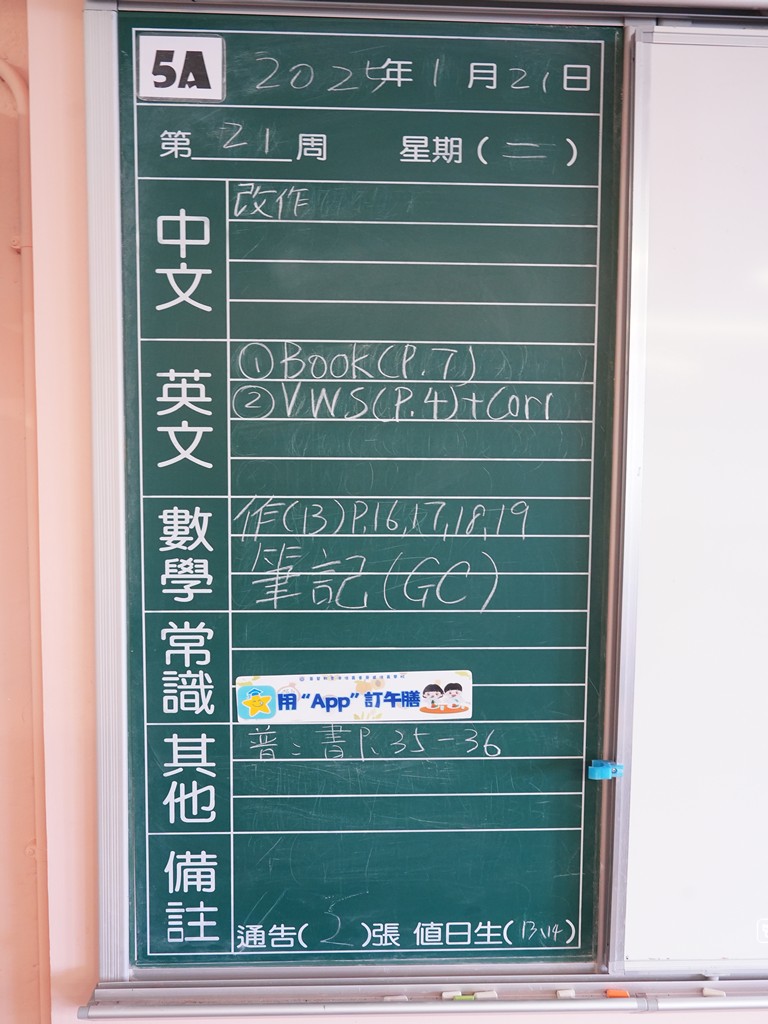 5A 2025年1月21日
第21周 星期(二)
中文
改作
英文
①Book(P.7)
②VWS(P.4)+Corr
數學
作(13)P.16,17,18,19
筆記(GC)
常識
用“App”訂午膳
其他
普:書P.35-36
備註
通告(2)張 值日生(13、14)